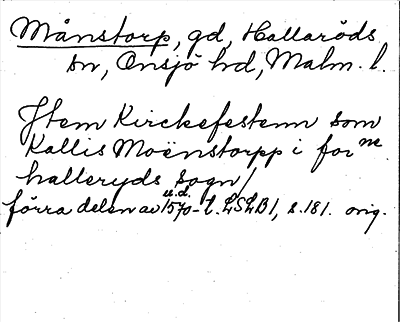 Månstorp, gd, Hallaröds
sn, Onsjö hd, Malm. l.
Item Kirckefestenn som
Kallis Moënstorpp i for m
halleryds sogn/
u.d.
förra delen av 1570-t. LSLB1, s. 181. orig.